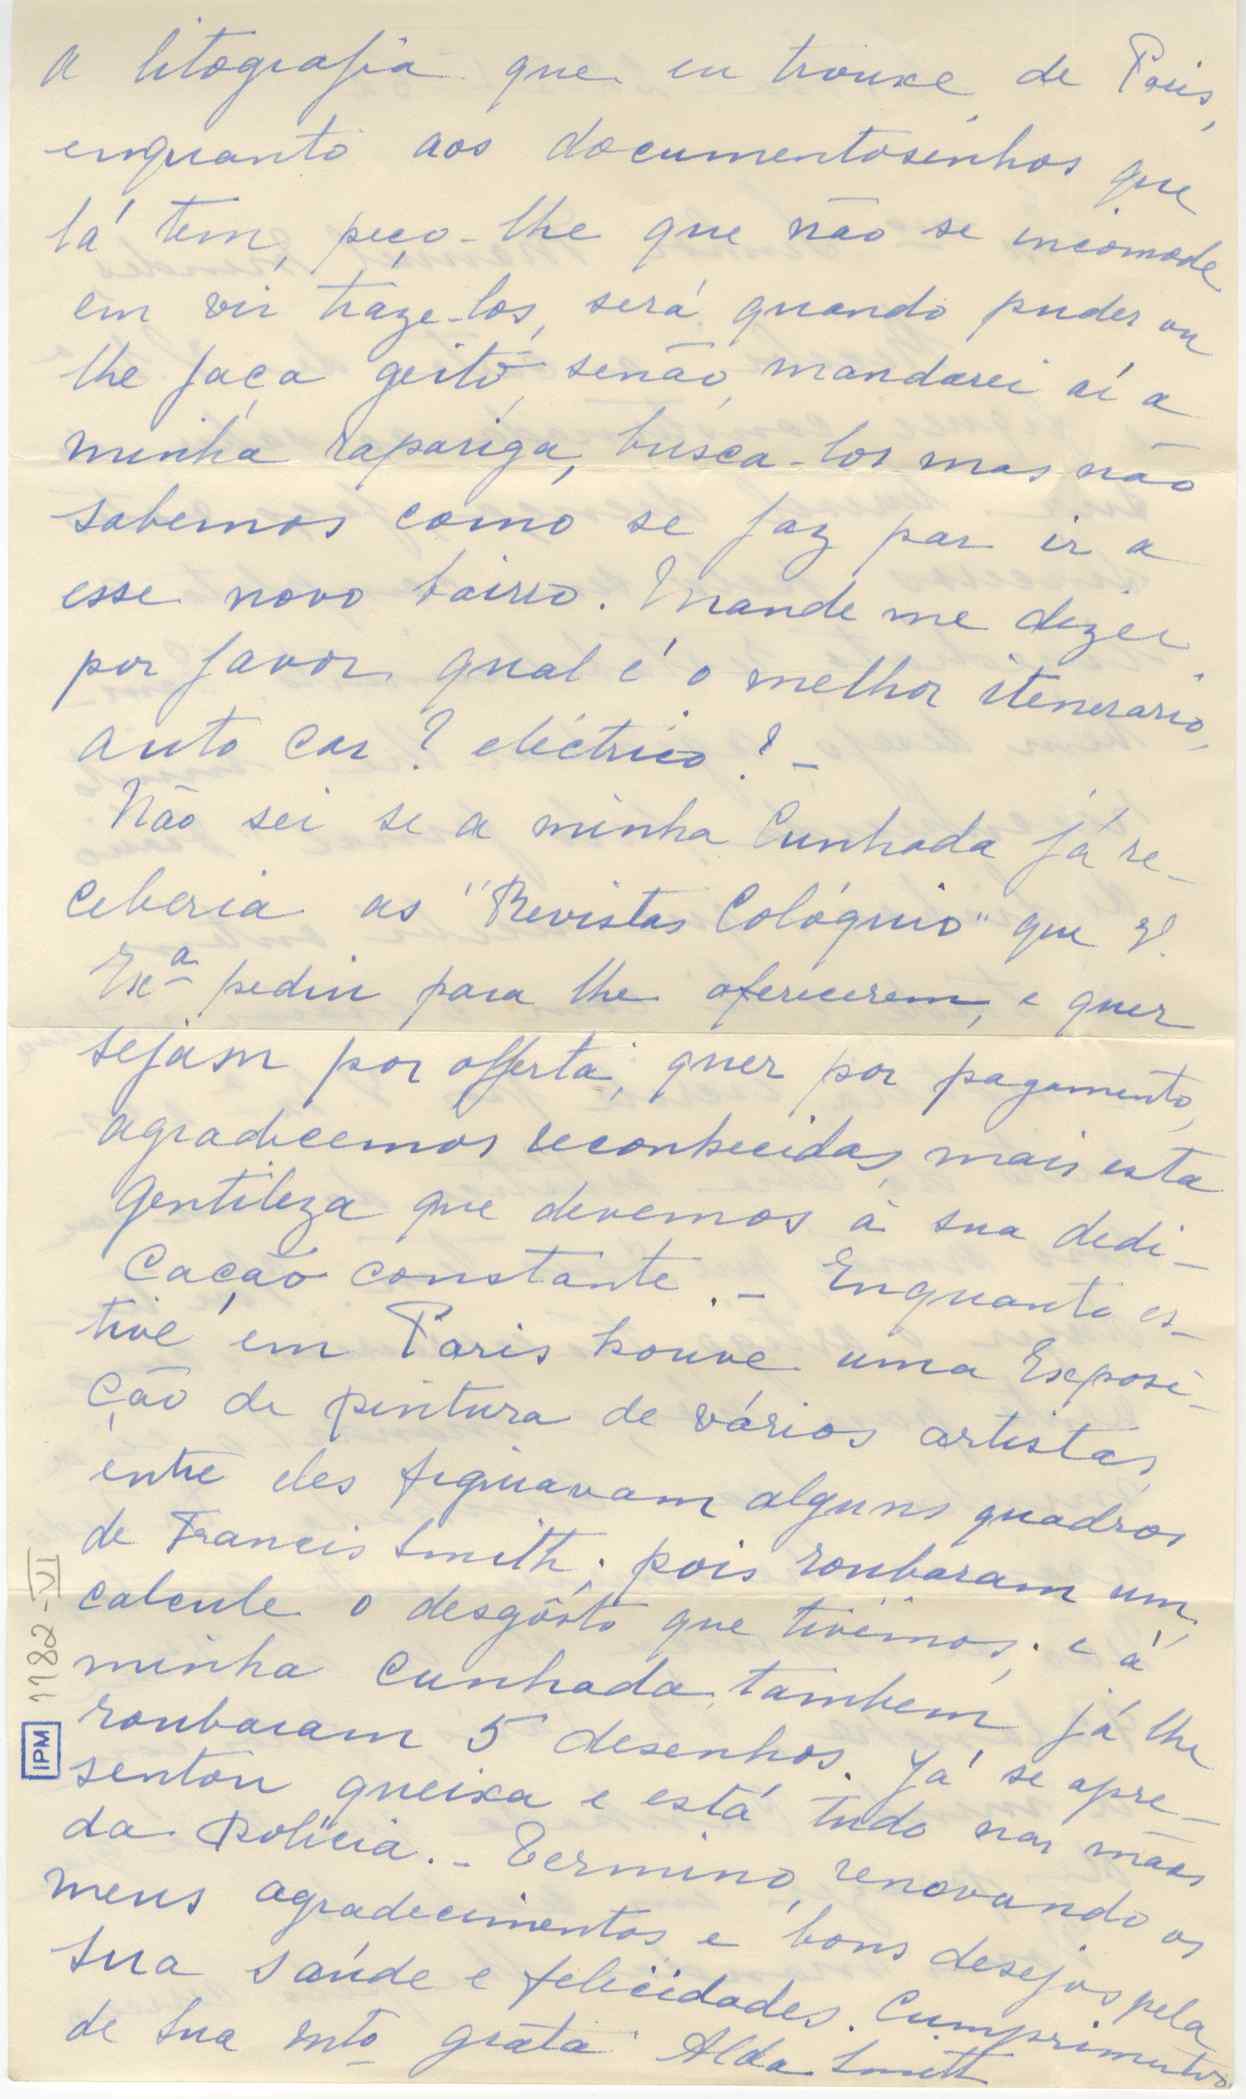 a litografia que eu trouxe, de Paris,
enquanto aos documentosinhos que
lá tem, peço-lhe que não se incomode
em vir traze-los, será quando puder ou
lhe faça geito, senão, mandarei aí a
minha rapariga, busca-los mas não
sabemos como se faz par ir a
esse novo bairro. Mande me dizer
por favor, qual é o melhor itenerario,
auto car? eléctrico? -
Não sei se a minha Cunhada já re-
ceberia as "Revistas Colóquio" que V.
Exª pediu para lhe oferecerem, e quer
sejam por offerta, quer por pagamento,
agradecemos reconhecidas, mais esta
gentileza que devemos à sua dedi-
cação constante. - Enquanto es-
tive em Paris houve uma Exposi-
ção de pintura de vários artistas,
entre eles figuravam alguns quadros
de Francis Smith; pois roubaram um,
calcule o desgôsto que tivémos; e á
minha Cunhada, tambem já lhe
roubaram 5 desenhos. Já se apre-
sentou queixa e está tudo nas mãos
da Polícia. - Termino, renovando os
meus agradecimentos e bons desejos pela
sua saúde e felicidades. Cumprimentos
de sua mto grata Alda Smith
IPM 1182-VI